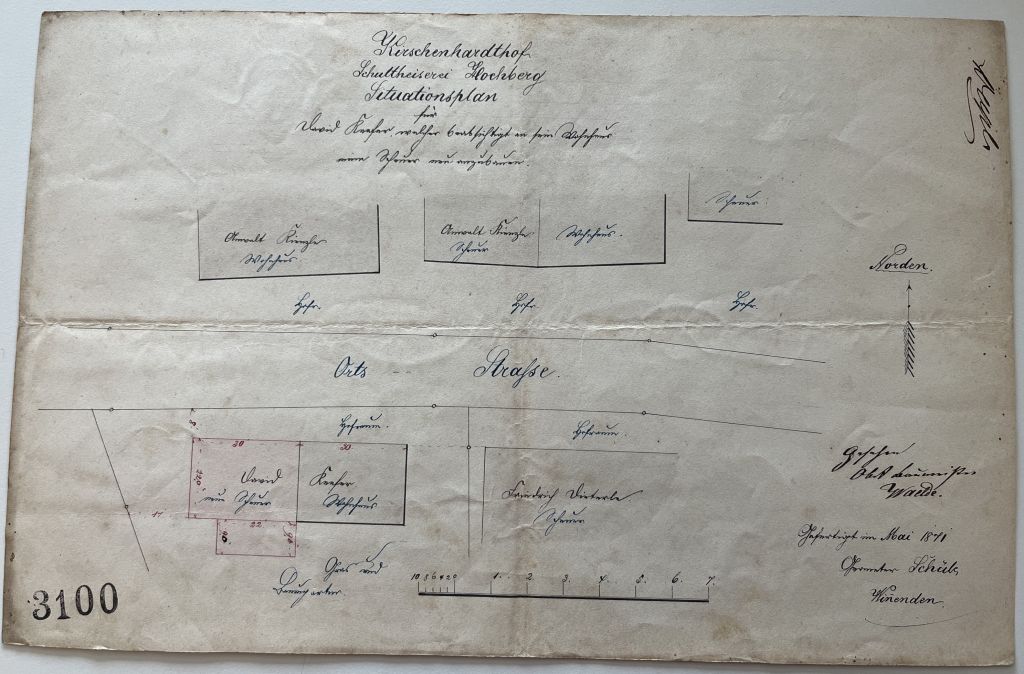 Kirschenhardthof
Schultheiserei Hochberg
Situationsplan
für
David Keefer welcher beabsichtigt an sein Wohnhaus
eine Scheuer neu anzubauen.
Scheuer.
Anwalt Kienzle
Wohnhaus.
Anwalt Kienzle
Scheuer
Wohnhaus.
Norden.
Hofr.
Hofr.
Hofr.
Orts Strasse.
Hofraum.
Hofraum.
8
30
30
22,0
David Keefer
neue Scheuer
Wohnhaus
Friedrich Dieterle
Scheuer
17
22
Gras und
Baumgarten.
10 8 6 4 2 0 1. 2. 3. 4. 5. 6. 7.
Gesehen
Obt Baumeister
Gefertigt im Mai 1871
Geometer Schüle,
Winenden.
3100